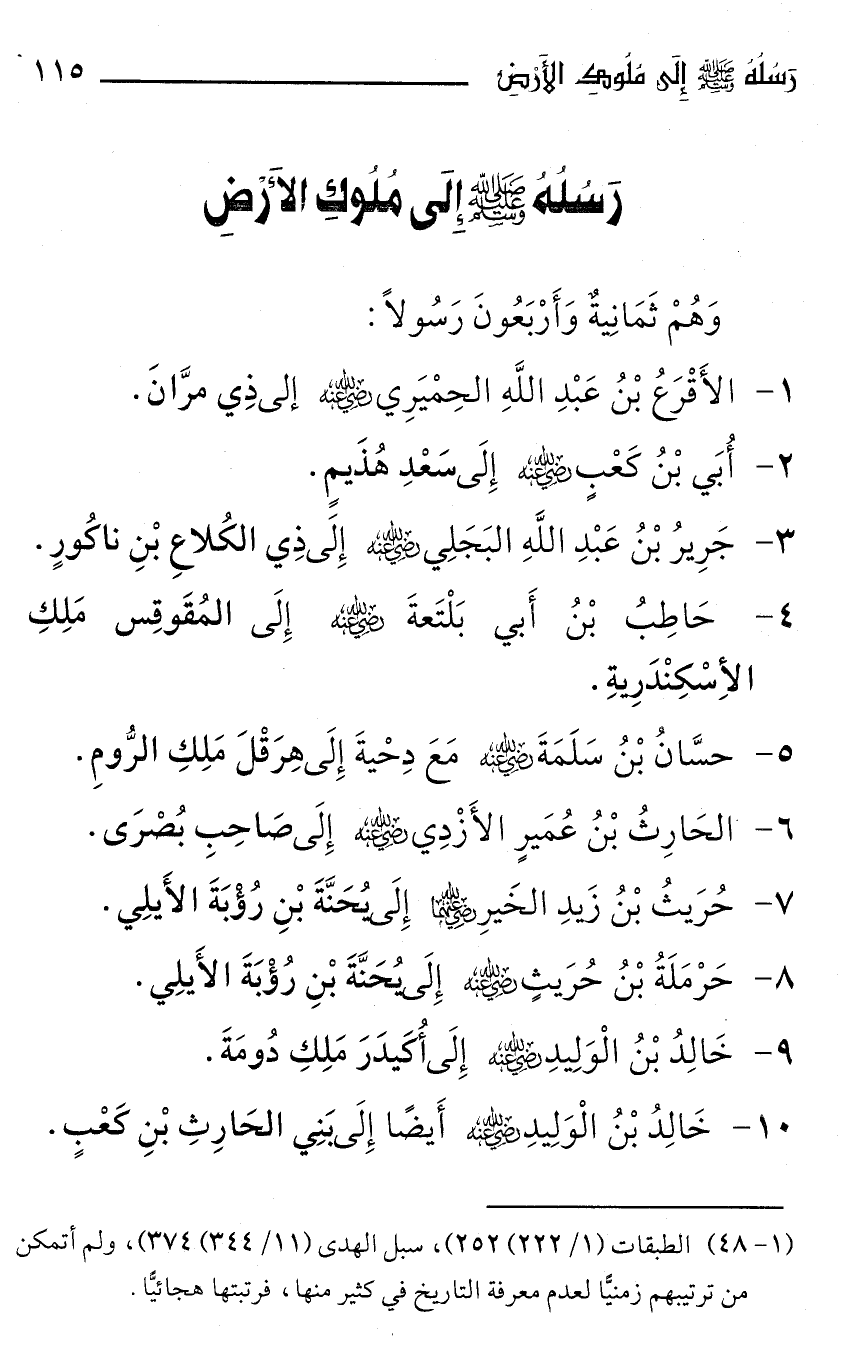 رَسُلُهُ ﷺ إِلَى مُلُوكِ الأَرْضِ ١١٥
رَسُلُهُ ﷺ إِلَى مُلُوكِ الأَرْضِ
وَهُمْ ثَمَانِيةٌ وَأَرْبَعُونَ رَسُولاً :
١- الأَقْرَعُ بْنُ عَبْدِ اللَّهِ الحِمْيَرِي رضي الله عنه إلى ذِي مرَّانَ .
٢- أُبَي بْنُ كَعْبٍ رضي الله عنه إِلَى سَعْدِ هُذَيمٍ .
٣- جَرِيرُ بْنُ عَبْدِ اللَّهِ البَجَلِي رضي الله عنه إِلَى ذِي الكُلاعِ بْنِ ناكُورٍ .
٤- حَاطِبُ بْنُ أَبي بَلْتَعةَ رضي الله عنه إِلَى المُقَوقِس مَلِكِ
الأِسْكِنْدَرِيةِ .
٥- حسَّانُ بْنُ سَلَمَةَ رضي الله عنه مَعَ دِحْيةَ إِلَى هِرَقْلَ مَلِكِ الرُّومِ .
٦- الحَارِثُ بْنُ عُمَيرٍ الأَزْدِي رضي الله عنه إِلَى صَاحِبِ بُصْرَى .
٧- حُرَيثُ بْنُ زَيدِ الخَيرِ رضي الله عنهما إِلَى يُحَنَّةَ بْنِ رُؤْبَةَ الأَيلِي .
٨- حَرْمَلَةُ بْنُ حُرَيثٍ رضي الله عنه إِلَى يُحَنَّةَ بْنِ رُؤْبَةَ الأَيلِي .
٩- خَالِدُ بْنُ الْوَلِيدِ رضي الله عنه إِلَى أُكَيدَرَ مَلِكِ دُومَةَ .
١٠- خَالِدُ بْنُ الْوَلِيدِ رضي الله عنه أَيضًا إِلَى بَنِي الحَارِثِ بْنِ كَعْبٍ .
(١- ٤٨) الطبقات (١/ ٢٢٢) ٢٥٢)، سبل الهدى (١١/ ٣٤٤) ٣٧٤)، ولم أتمكن
من ترتيبهم زمنيًّا لعدم معرفة التاريخ في كثير منها، فرتبتها هجائيًّا .